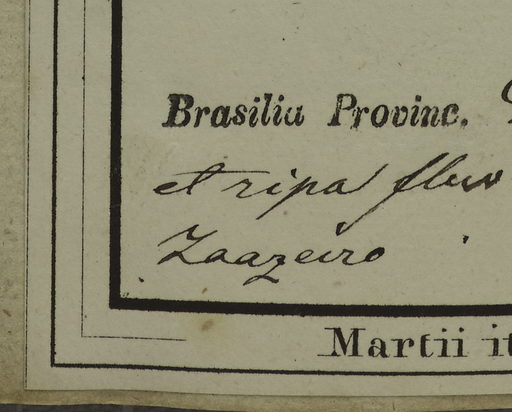 Brasilia Provinc.
et ripa fluv
Martii it